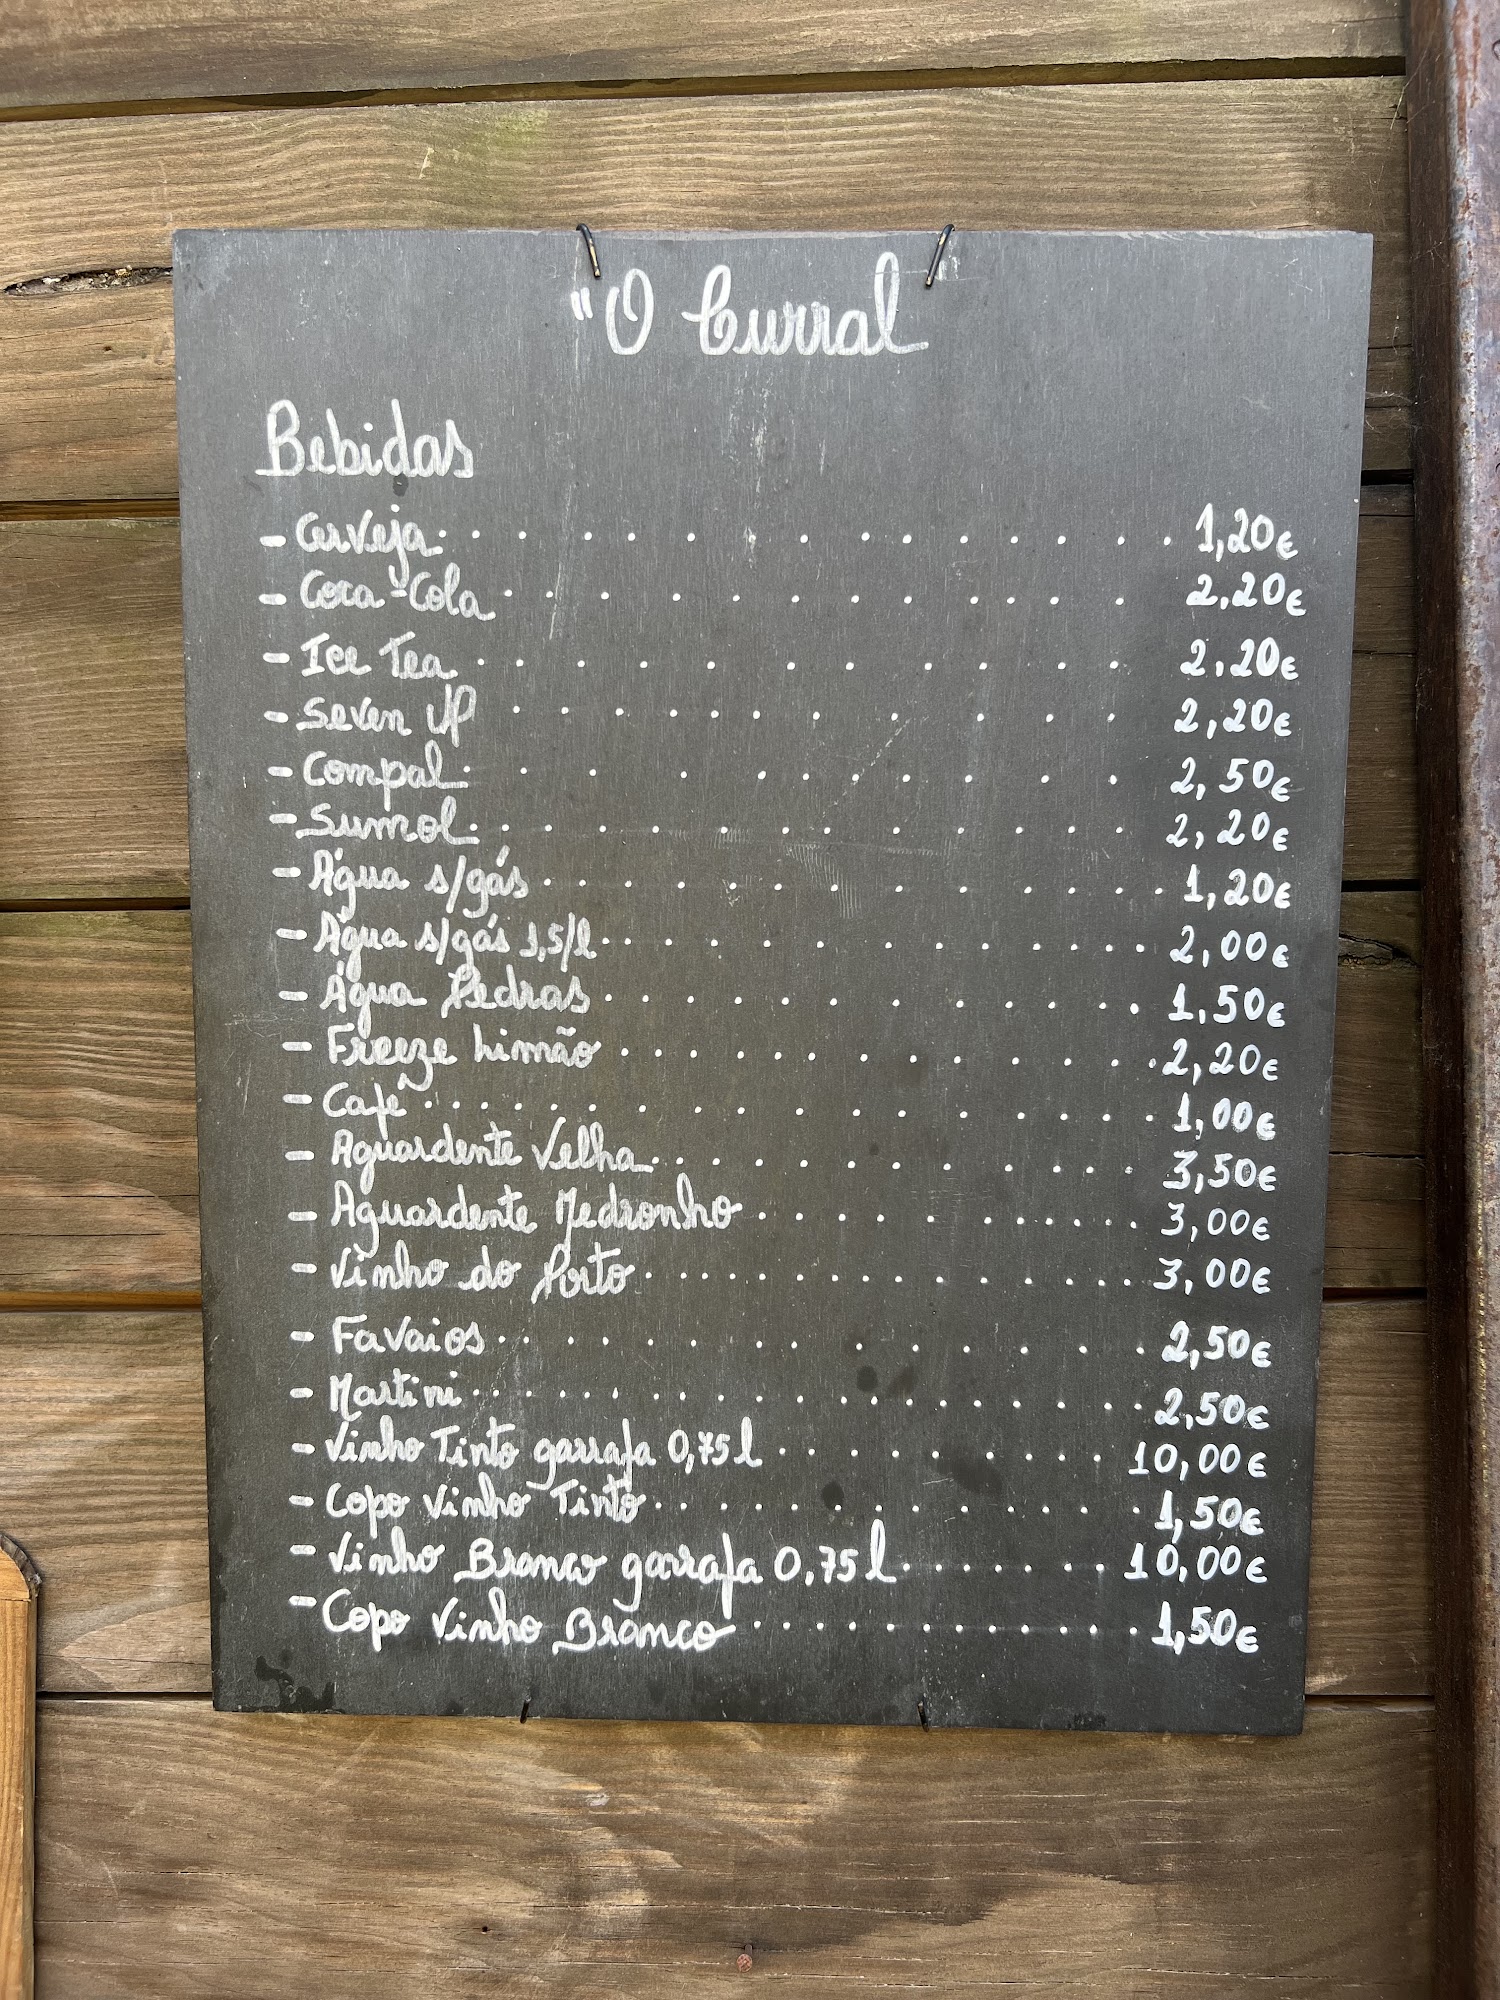 "O Curral
Bebidas
- Cerveja . . . . . . . . . . . . . . 1,20€
- Coca-Cola . . . . . . . . . . . . 2,20€
- Ice Tea . . . . . . . . . . 2,20€
- Seven UP . . . . . . . . . . . 2,20€
- Compal . . . . . . . . . . . 2,50€
- Sumol . . . . . . . . . . . . 2,20€
- Água s/gás . . . . . . . . . . . . 1,20€
- Água s/gás 1,5/l . . . . . . . . . . . . 2,00€
- Água Pedras . . . . . . . . . . . . 1,50€
- Freeze Limão . . . . . . . . . . . . 2,20€
- Café . . . . . . . . . . . . . . 1,00€
- Aguardente Velha . . . . . . . . . . . . 3,50€
- Aguardente Medronho . . . . . . . . . . . . 3,00€
- Vinho do Porto . . . . . . . . . . . . . . 3,00€
- Favaios . . . . . . . . . . . . 2,50€
- Martini . . . . . . . . . . . . . . 2,50€
- Vinho Tinto garrafa 0,75l . . . . . . . . . . 10,00€
- Copo Vinho Tinto . . . . . . . . . . . . 1,50€
- Vinho Branco garrafa 0,75l . . . . . . . . 10,00€
- Copo Vinho Branco . . . . . . . . . . . . 1,50€